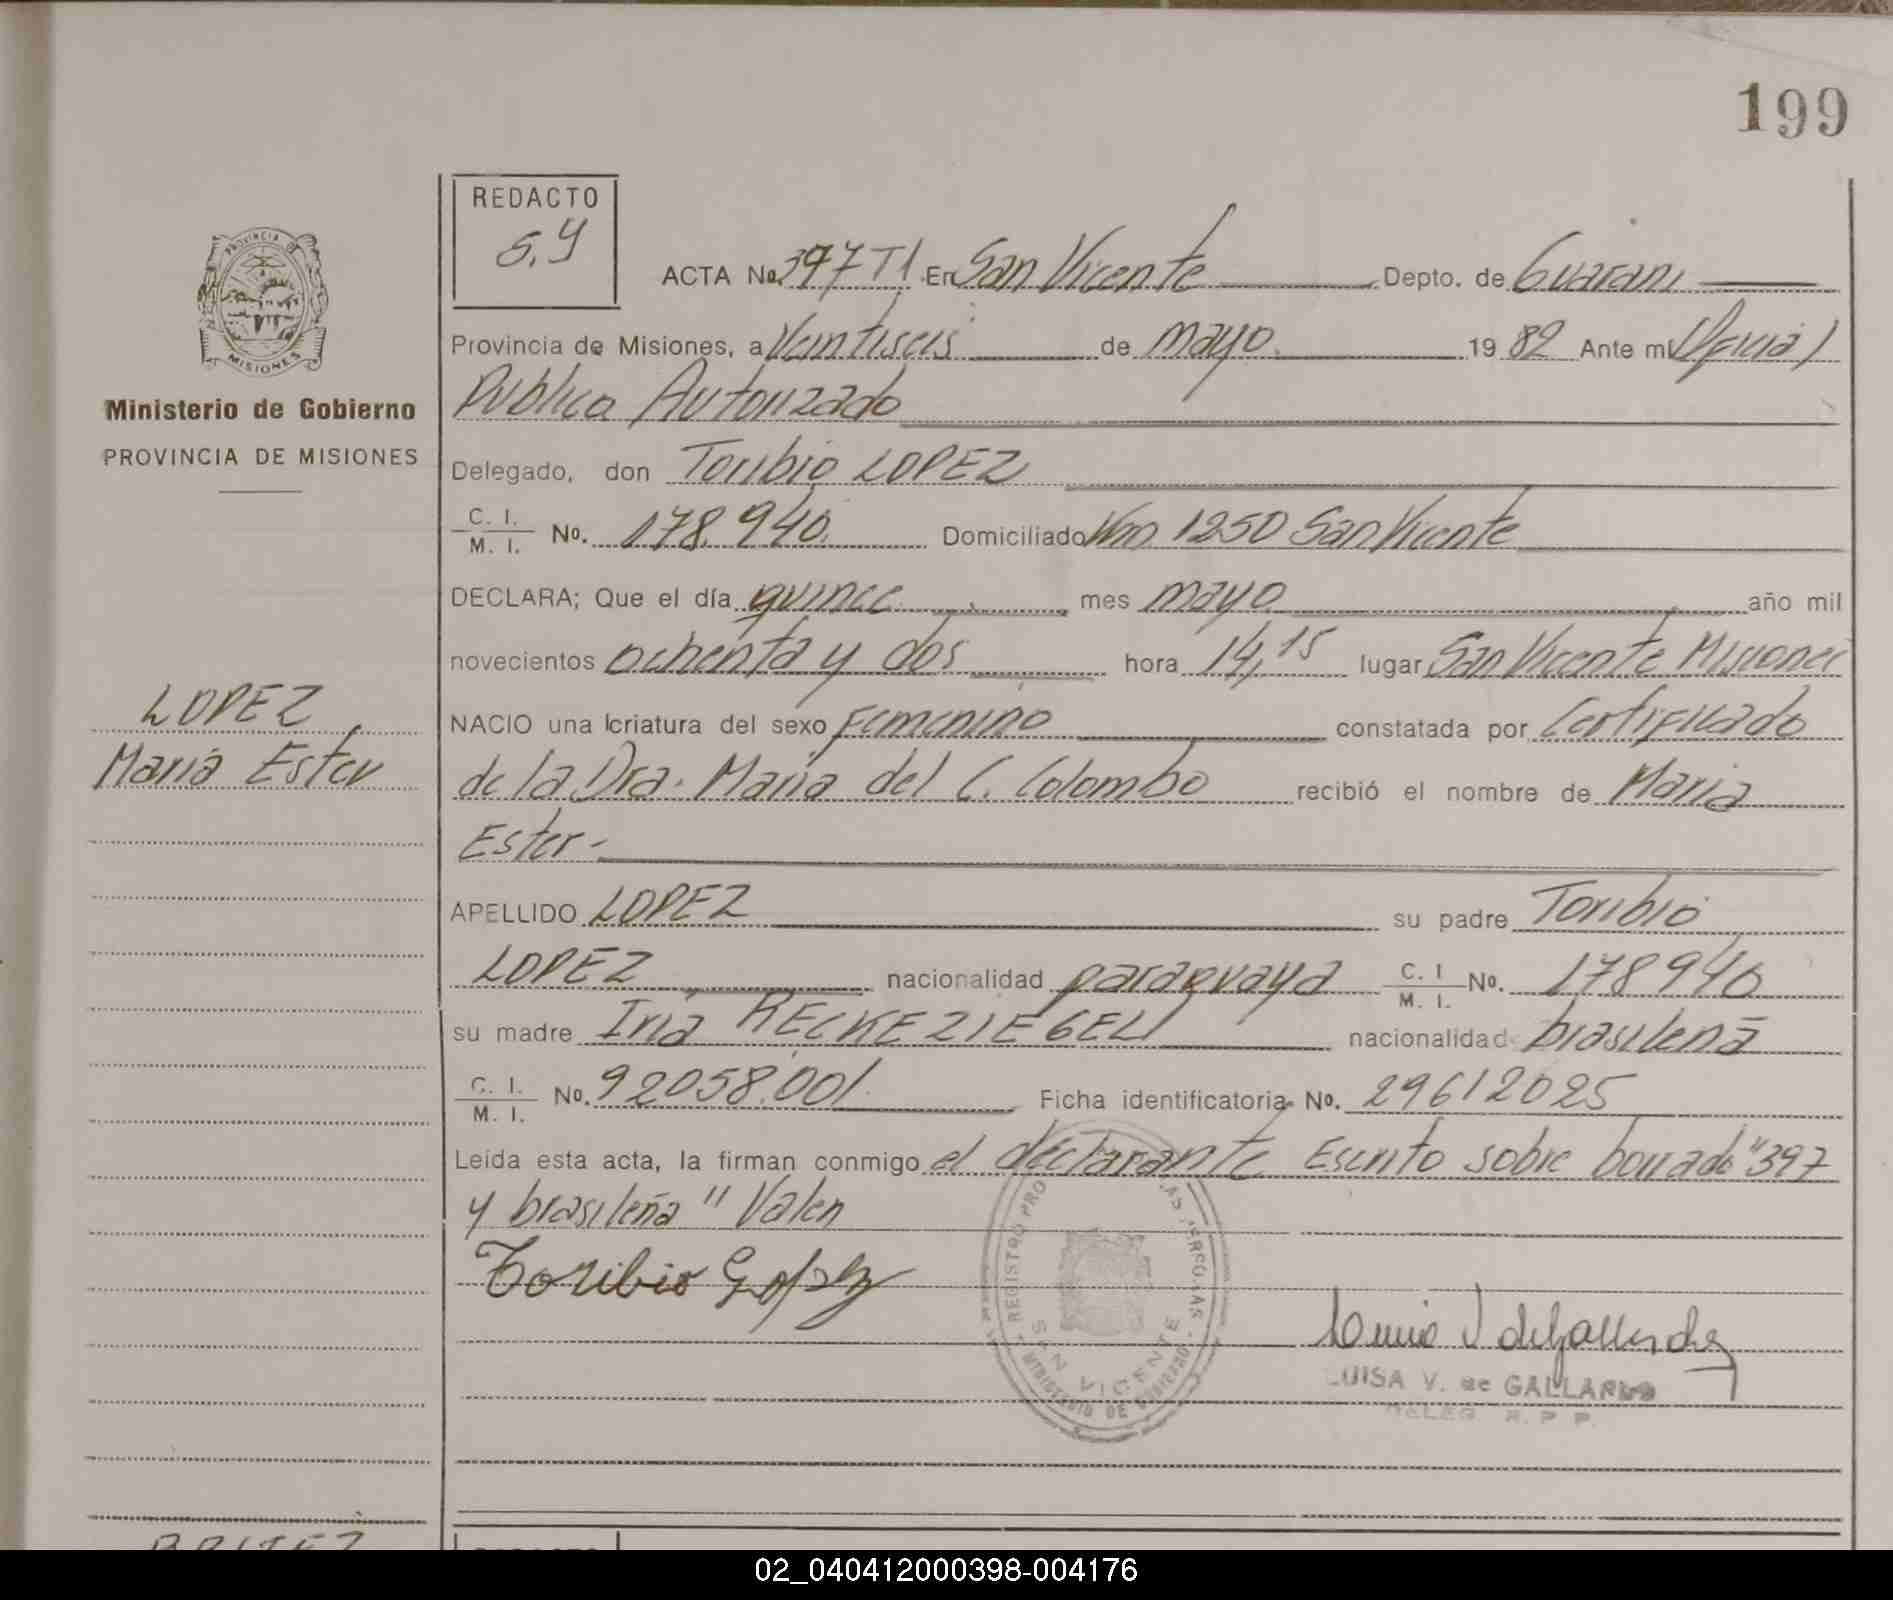 199
REDACTO
S.Y
PROVINCIA DE
MISIONES
Ministerio de Gobierno
PROVINCIA DE MISIONES
LOPEZ
Maria Ester
ACTA No. 397 T1 En San Vicente Depto. de Guarani
Provincia de Misiones, a Veintiseis de mayo 19 82 Ante mi Oficial
Publico Autorizado
Delegado, don Toribio LOPEZ
C. I. M. I. No. 178.940. Domiciliado Km 1250 San Vicente
DECLARA; Que el día quince mes mayo año mil
novecientos ochenta y dos hora 14,15 lugar San Vicente Misiones
NACIO una criatura del sexo Femenino constatada por Certificado
de la Dra. Maria del C. Colombo recibió el nombre de Maria
Ester -
APELLIDO LOPEZ su padre Toribio
LOPEZ nacionalidad paraguaya C. I M. I. No. 178940
su madre Iria RECKEZIEGEL nacionalidad brasileña
C. I. M. I. No. 92058.001. Ficha identificatoria No. 29612025
Leída esta acta, la firman conmigo el declarante Escrito sobre borrado "397
y brasileña" Valen
Toribio Lopez
REGISTRO PRO LAS PERSONAS
SAN VICENTE
MINISTERIO DE GOBIERNO
LUISA V. de GALLARDO
DELEG. R. P. P.
02_040412000398-004176